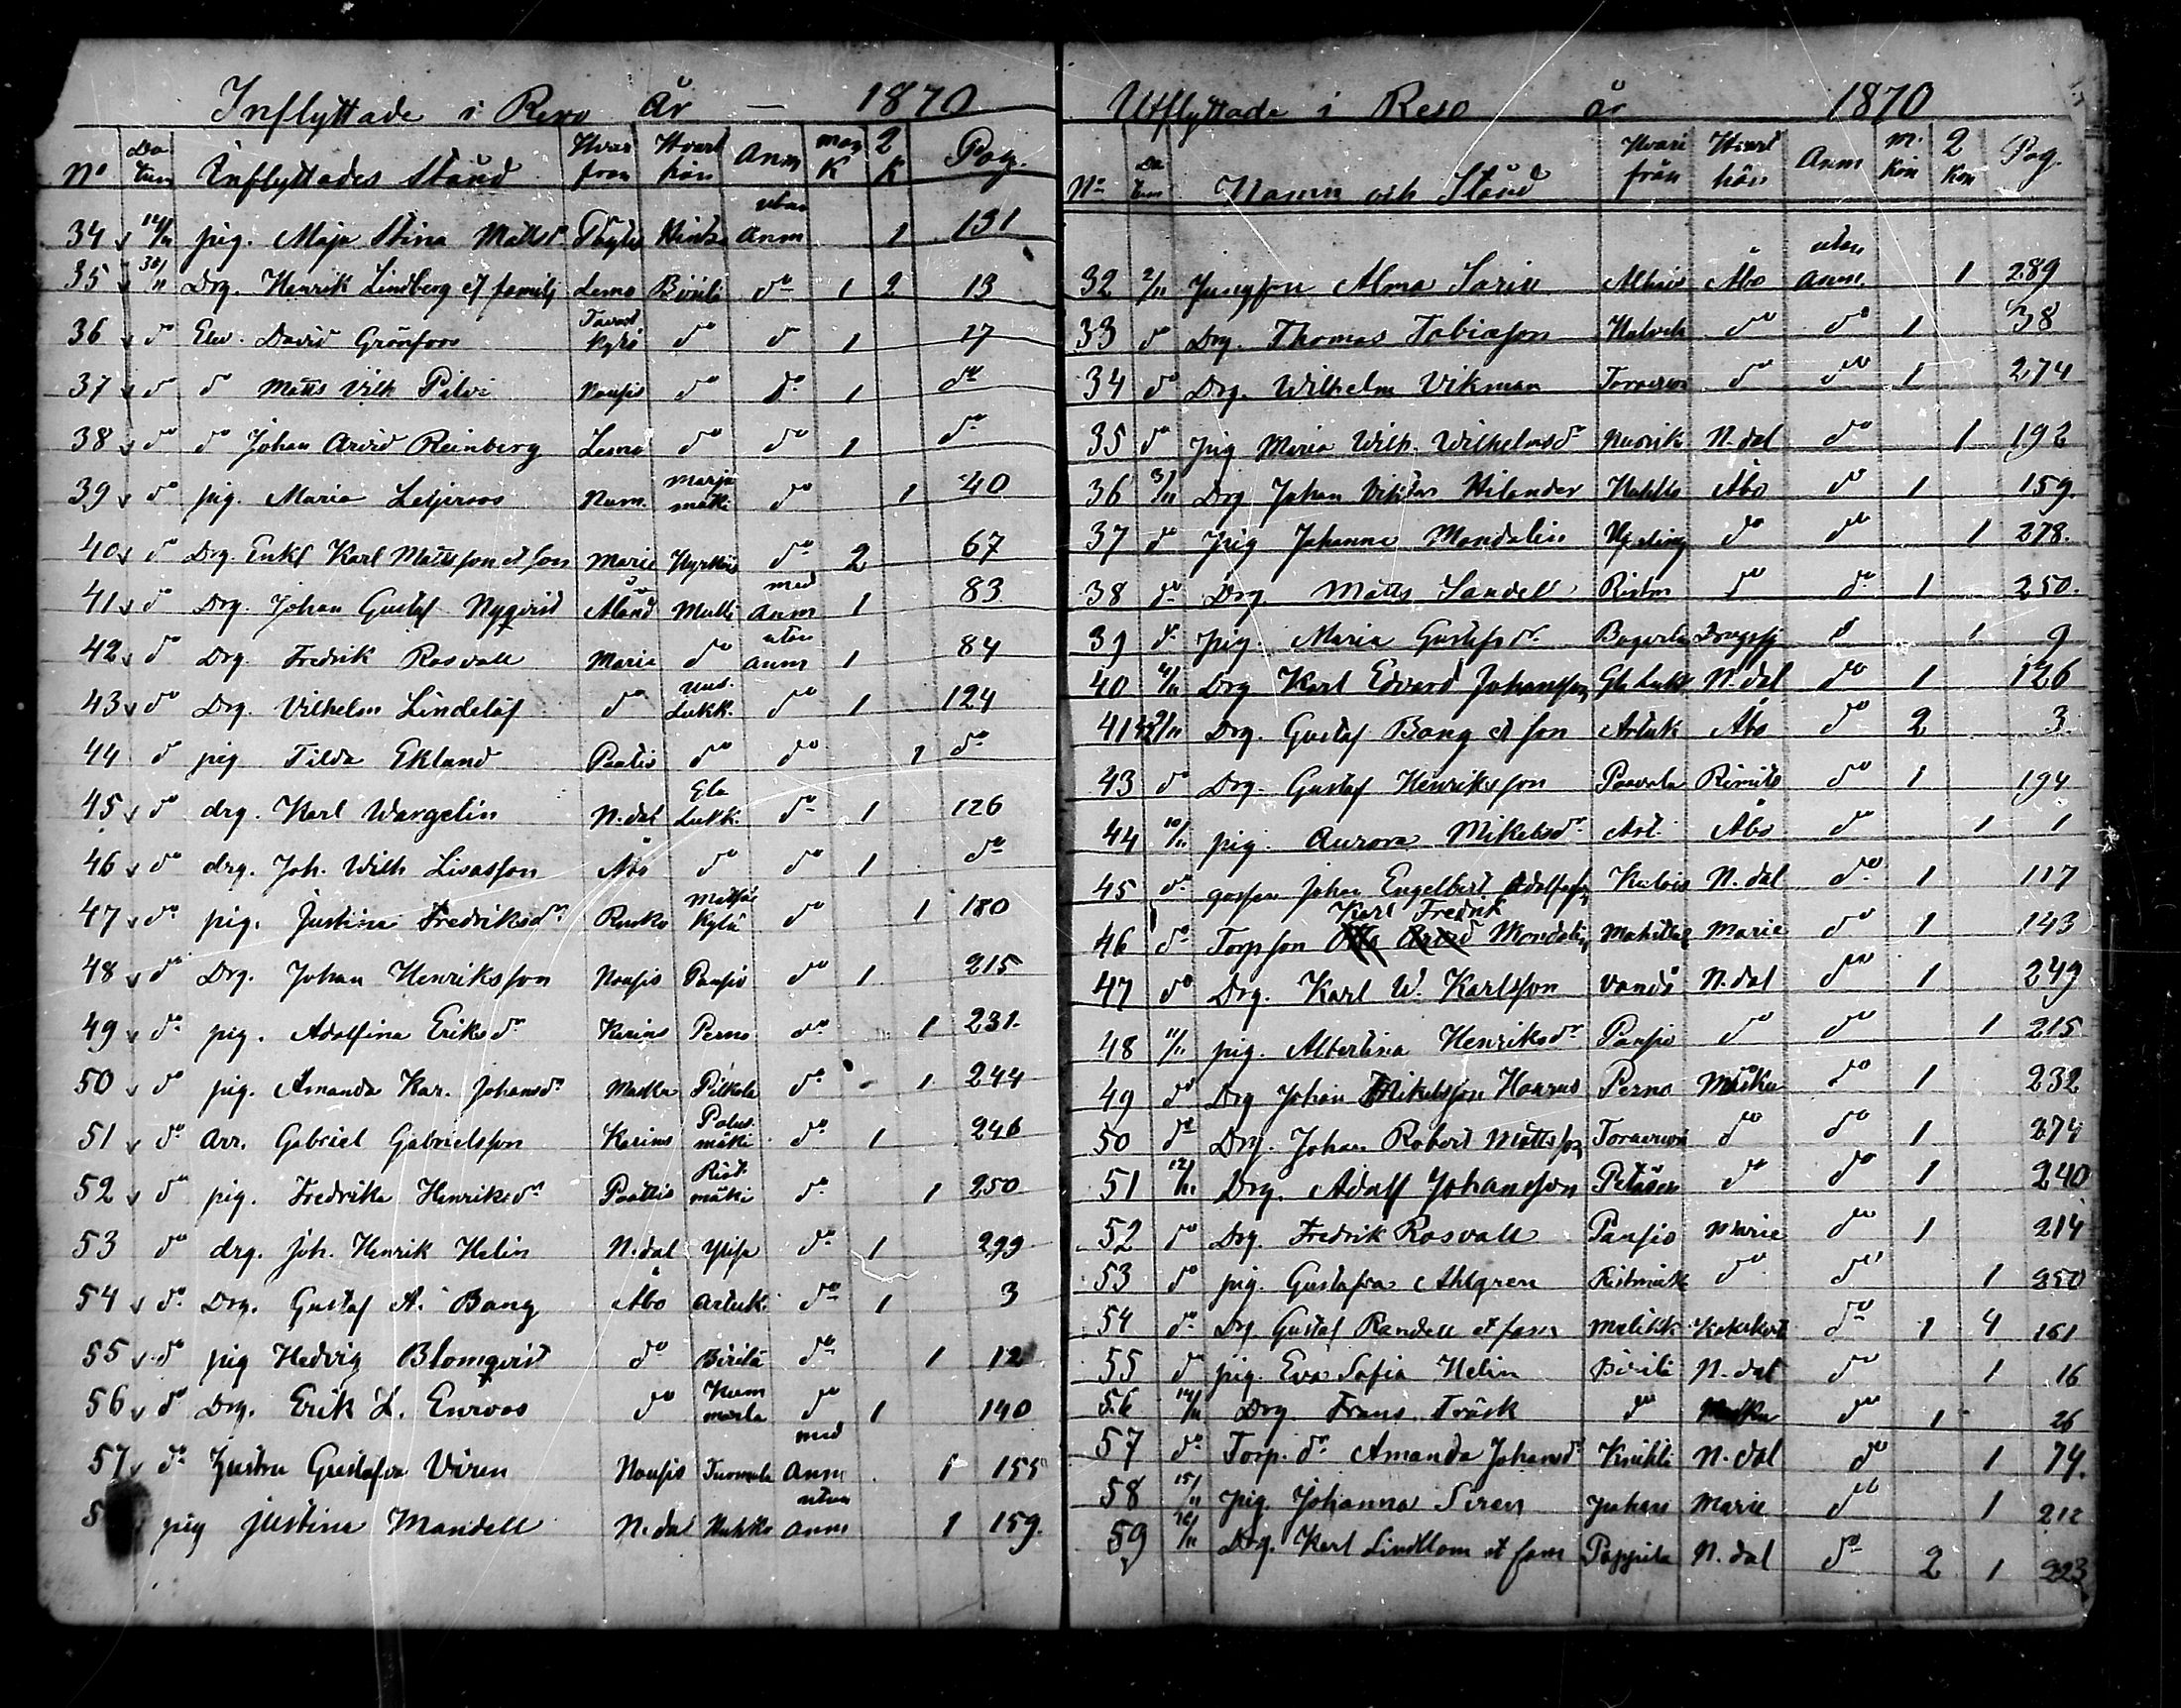 Inflyttade i Reso år — 1870
No Datum Inflyttades Stånd Hvarfrån Hvarthän Anm man K 2 K Pag.
34 14/11 pig. Maja Stina Mattsdr utan Anm 1 131
35 30/11 Drg. Henrik Lindberg et familj Lemo Biötilä do 1 2 13
36 do Elev. David Grönfors Tavastkyrö do do 1 17
37 do do Matts Vilh Pilvi Nousis do do 1 do
38 do do Johan Arvid Reinberg Lemo do do 1 do
39 do pig. Maria Leijeroos Num. Marjamäki do 1 40
40 do Drg. Enkl Karl Mattsson et son Marie do 2 67
41 do Drg. Johan Gustaf Nyqvist Åland Multi med Anm 1 83
42 do Drg Fredrik Rosvall Marie do utan Anm 1 84
43 do Drg. Vilhelm Lindelöf do Lukk. do 1 124
44 do pig Tilda Eklund do do 1 do
45 do drg. Karl Wargelin N.dal Gla Lukk. do 1 126
46 do drg. Joh. Wilh Lisasson Åbo do do 1 do
47 do pig. Justina Fredriksdr. Rusko kylä do 1 180
48 do Drg. Johan Henriksson Nousis Pansio do 1 215
49 do pig. Adolfina Eriksdr Karins Perno do 1 231
50 do pig. Amanda Kar. Johansdr Masku Pilkola do 1 244
51 do Arr. Gabriel Gabrielsson Karins mäki do 1 246
52 do pig. Fredrika Henriksdr Paattis Ristmäki do 1 250
53 do drg. Joh. Henrik Helin N.dal do 1 299
54 do Drg. Gustaf A. Bang Åbo Artuki do 1 3
55 do pig Hedvig Blomqvist do do 1 12
56 do Drg. Erik L. Enroos do do 1 140
57 do Gustafva Viren Nousis med Anm 1 155
5 pig Justina Mandell N.dal utan Anm 1 159.
Utflyttade i Reso år 1870
No Datum Namn och Stånd Hvarifrån Hvarthän Anm M. Kön 2 Kön Pag.
32 2/11 Jungfru Alma Sarin Åbo utan Anm. 1 289
33 do Drg. Thomas Tobiasson do do 1 38
34 do Drg. Wilhelm Vikman do do 1 274
35 do pig Maria Wilh. Wilhelmsdr N.dal do 1 192
36 3/11 Drg Johan Viktor Hilander Åbo do 1 159
37 do pig Johanna Mandelin do do 1 278.
38 do Drg. Matts Sandell Ristm do do 1 250.
39 do pig. Maria Gustafsdr. do 1 9
40 4/11 Drg Karl Edvard Johansson Gla Lukk N.dal do 1 126
41 42 9/11 Drg. Gustaf Bang et son Artuk Åbo do 2 3.
43 do Drg. Gustaf Henriksson Paavola Rimito do 1 194
44 10/11 pig. Aurora Mikelsdr. Art. Åbo do 1 1
45 do gossen Johan Engelbert Adolfsson N.dal do 1 117
46 do Torpson Karl Fredrik Mandelin Marie do 1 143
47 do Drg. Karl W. Karlsson N.dal do 1 249
48 11/11 pig. Albertina Henriksdr Pansio do do 1 215
49 do Drg Johan Mikelsson Haurus Perno Masku do 1 232
50 do Drg. Johan Robert Mattsson do do 1 274
51 12/11 Drg. Adolf Johansson do do 1 240
52 do Drg. Fredrik Rosvall Pansio Marie do 1 214
53 do pig. Gustafva Ahlgren Ristmäk do do 1 250
54 do Drg. Gustaf Randell et fam do 1 4 161
55 do pig. Eva Sofia Helin N.dal do 1 16
56 14/11 Drg Frans Träsk do Masku do 1 26
57 do Torp. dr. Amanda Johansdr N.dal do 1 74.
58 15/11 pig. Johanna Siren Marie do 1 212
59 Drg. Karl Lindblom et fam N.dal do 2 1 223